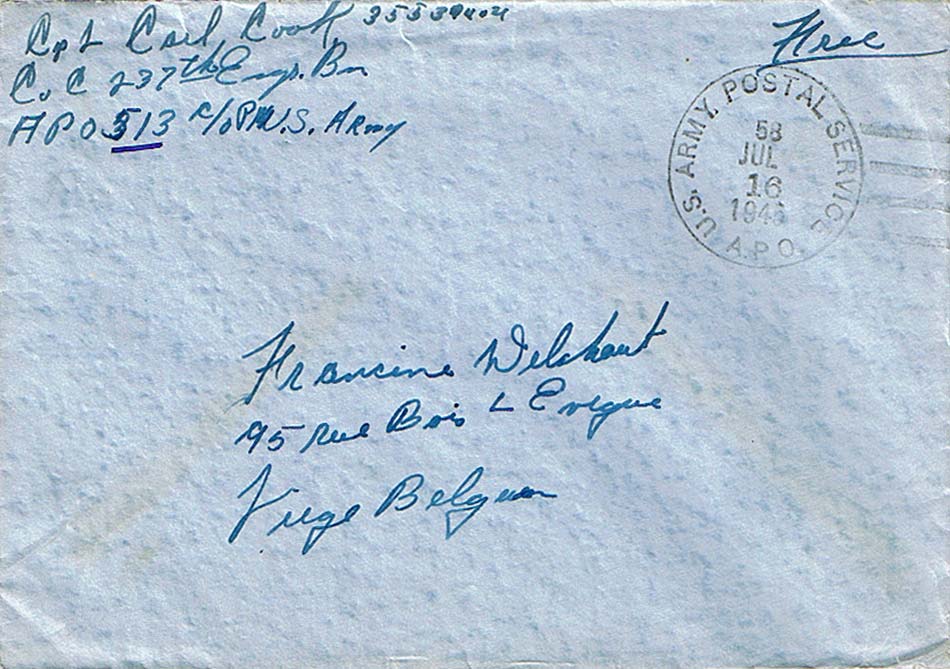 Cpl Carl Cook 35539404
Co C 237th Engr. Bn
APO 513 c/o PM U.S. Army
Free
U.S. ARMY. POSTAL SERVICE
58
JUL
16
194
A.P.O.
Francine
95 rue Bois L Eveque
Belguen